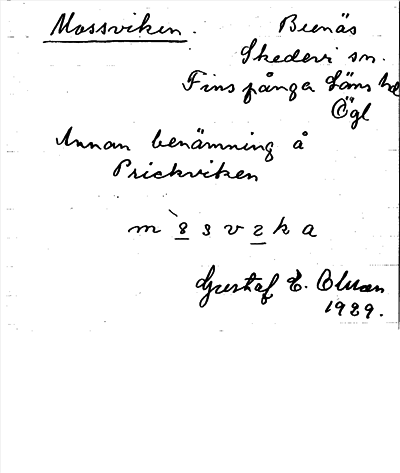 Mossviken. Bienäs
Skedevi sn.
Finspånga Läns hd
Ögl
Annan benämning å
Prickviken
Gustaf E.
1929.